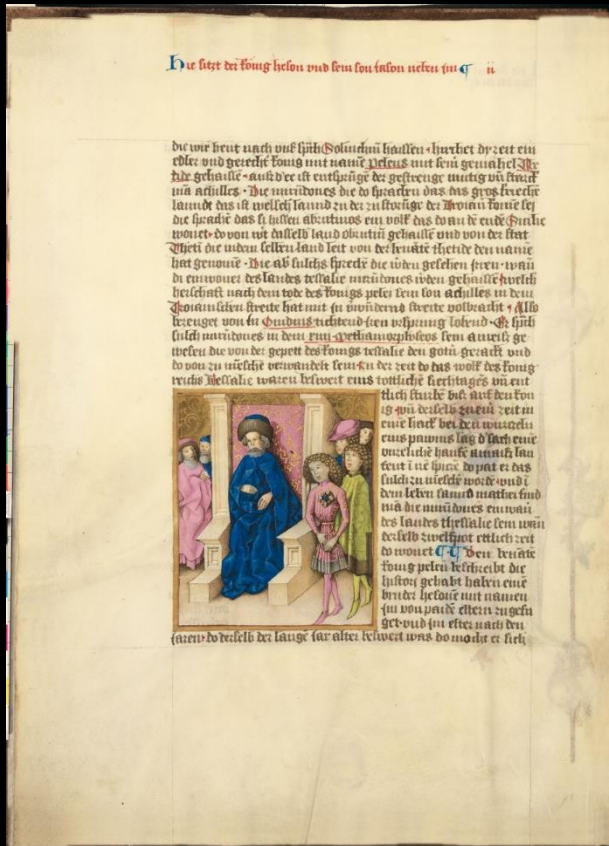 Hie sitzt der konig heson vnd sein son iason neben im ¶ ii
die wir heut nach vns haissen hirschet dy zeit ein
edler vnd gerecht konig mit name peleus mit sein gemahel
tide gehaisse aus der ist entsprüge der gestrenge mutig vn starck
man achilles Die mirmidones die do sprachen das das gros kriechē
lanndt das ist welsch lannd zu der zustorüge der Troian kome sei
die sprachē das si hissen ein volk das do an dē ende
wonet do von wt dasselb land gehaissē vnd von der stat
Theti die in dem selben land leit von der thetide den namē
hat genomē Die ab sulchs die werden gesehen wan
di einwoner des landes tessalie mirmidones gehaissē welch
herschaft nach dem tode des konigs pelei sein son achilles in dem
Troianischen streite hat mit streite volbracht Also
bezeuget von in Ouidius tichtend iren vrsprung lobend Er spch
sulch mirmidones in dem methamorphoseos sein ameise ge
wesen die von der gepett des konigs tessalie den gotn vnd
do von zu mēsche verwandelt sein in der zeit do das volk des konig
reichs Tessalie waren beswert eins tottliche siechtages vn ent
tlich sturbe bis auf den kon
ig vn derselb zu ein zeit in
eine bei den wurczeln
eins pawms lag sach eine
hauffe amaiss lau
fent do pat er das
sulch zu mēsche worde vnd i
dem leben sannd mathei sind
mā die mirmidones einwan
des landes thessalie sein wan
derselb zwelfpot ettlich zeit
do wonet ¶ ¶ Den
konig peleu beschreibt die
histori gehabt haben eine
bruder hesone mit namen
im von paide eltern zugefu
get vnd im elter nach den
iaren do derselb der lange iar alter beswert was do mocht er sich